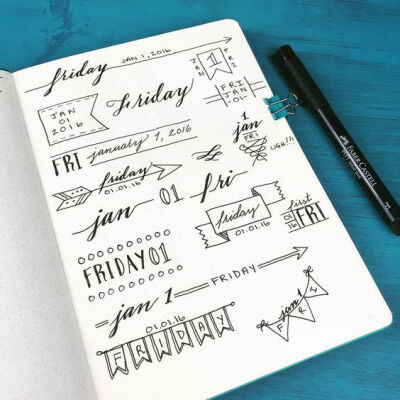 friday JAN 1, 2016
JAN 1 FRI
JAN
01
2016
Friday
FRI
JAN
-01-
FRI january 1, 2016
jan
1
FRI
UGH!!!
friday
01.01.16
fri
jan 01
friday
01.01.16
first
01
16
FRI
FRIDAY01
jan 1 FRIDAY
jan 1
FRI
01.01.16
FRIDAY
FABER-CASTELL